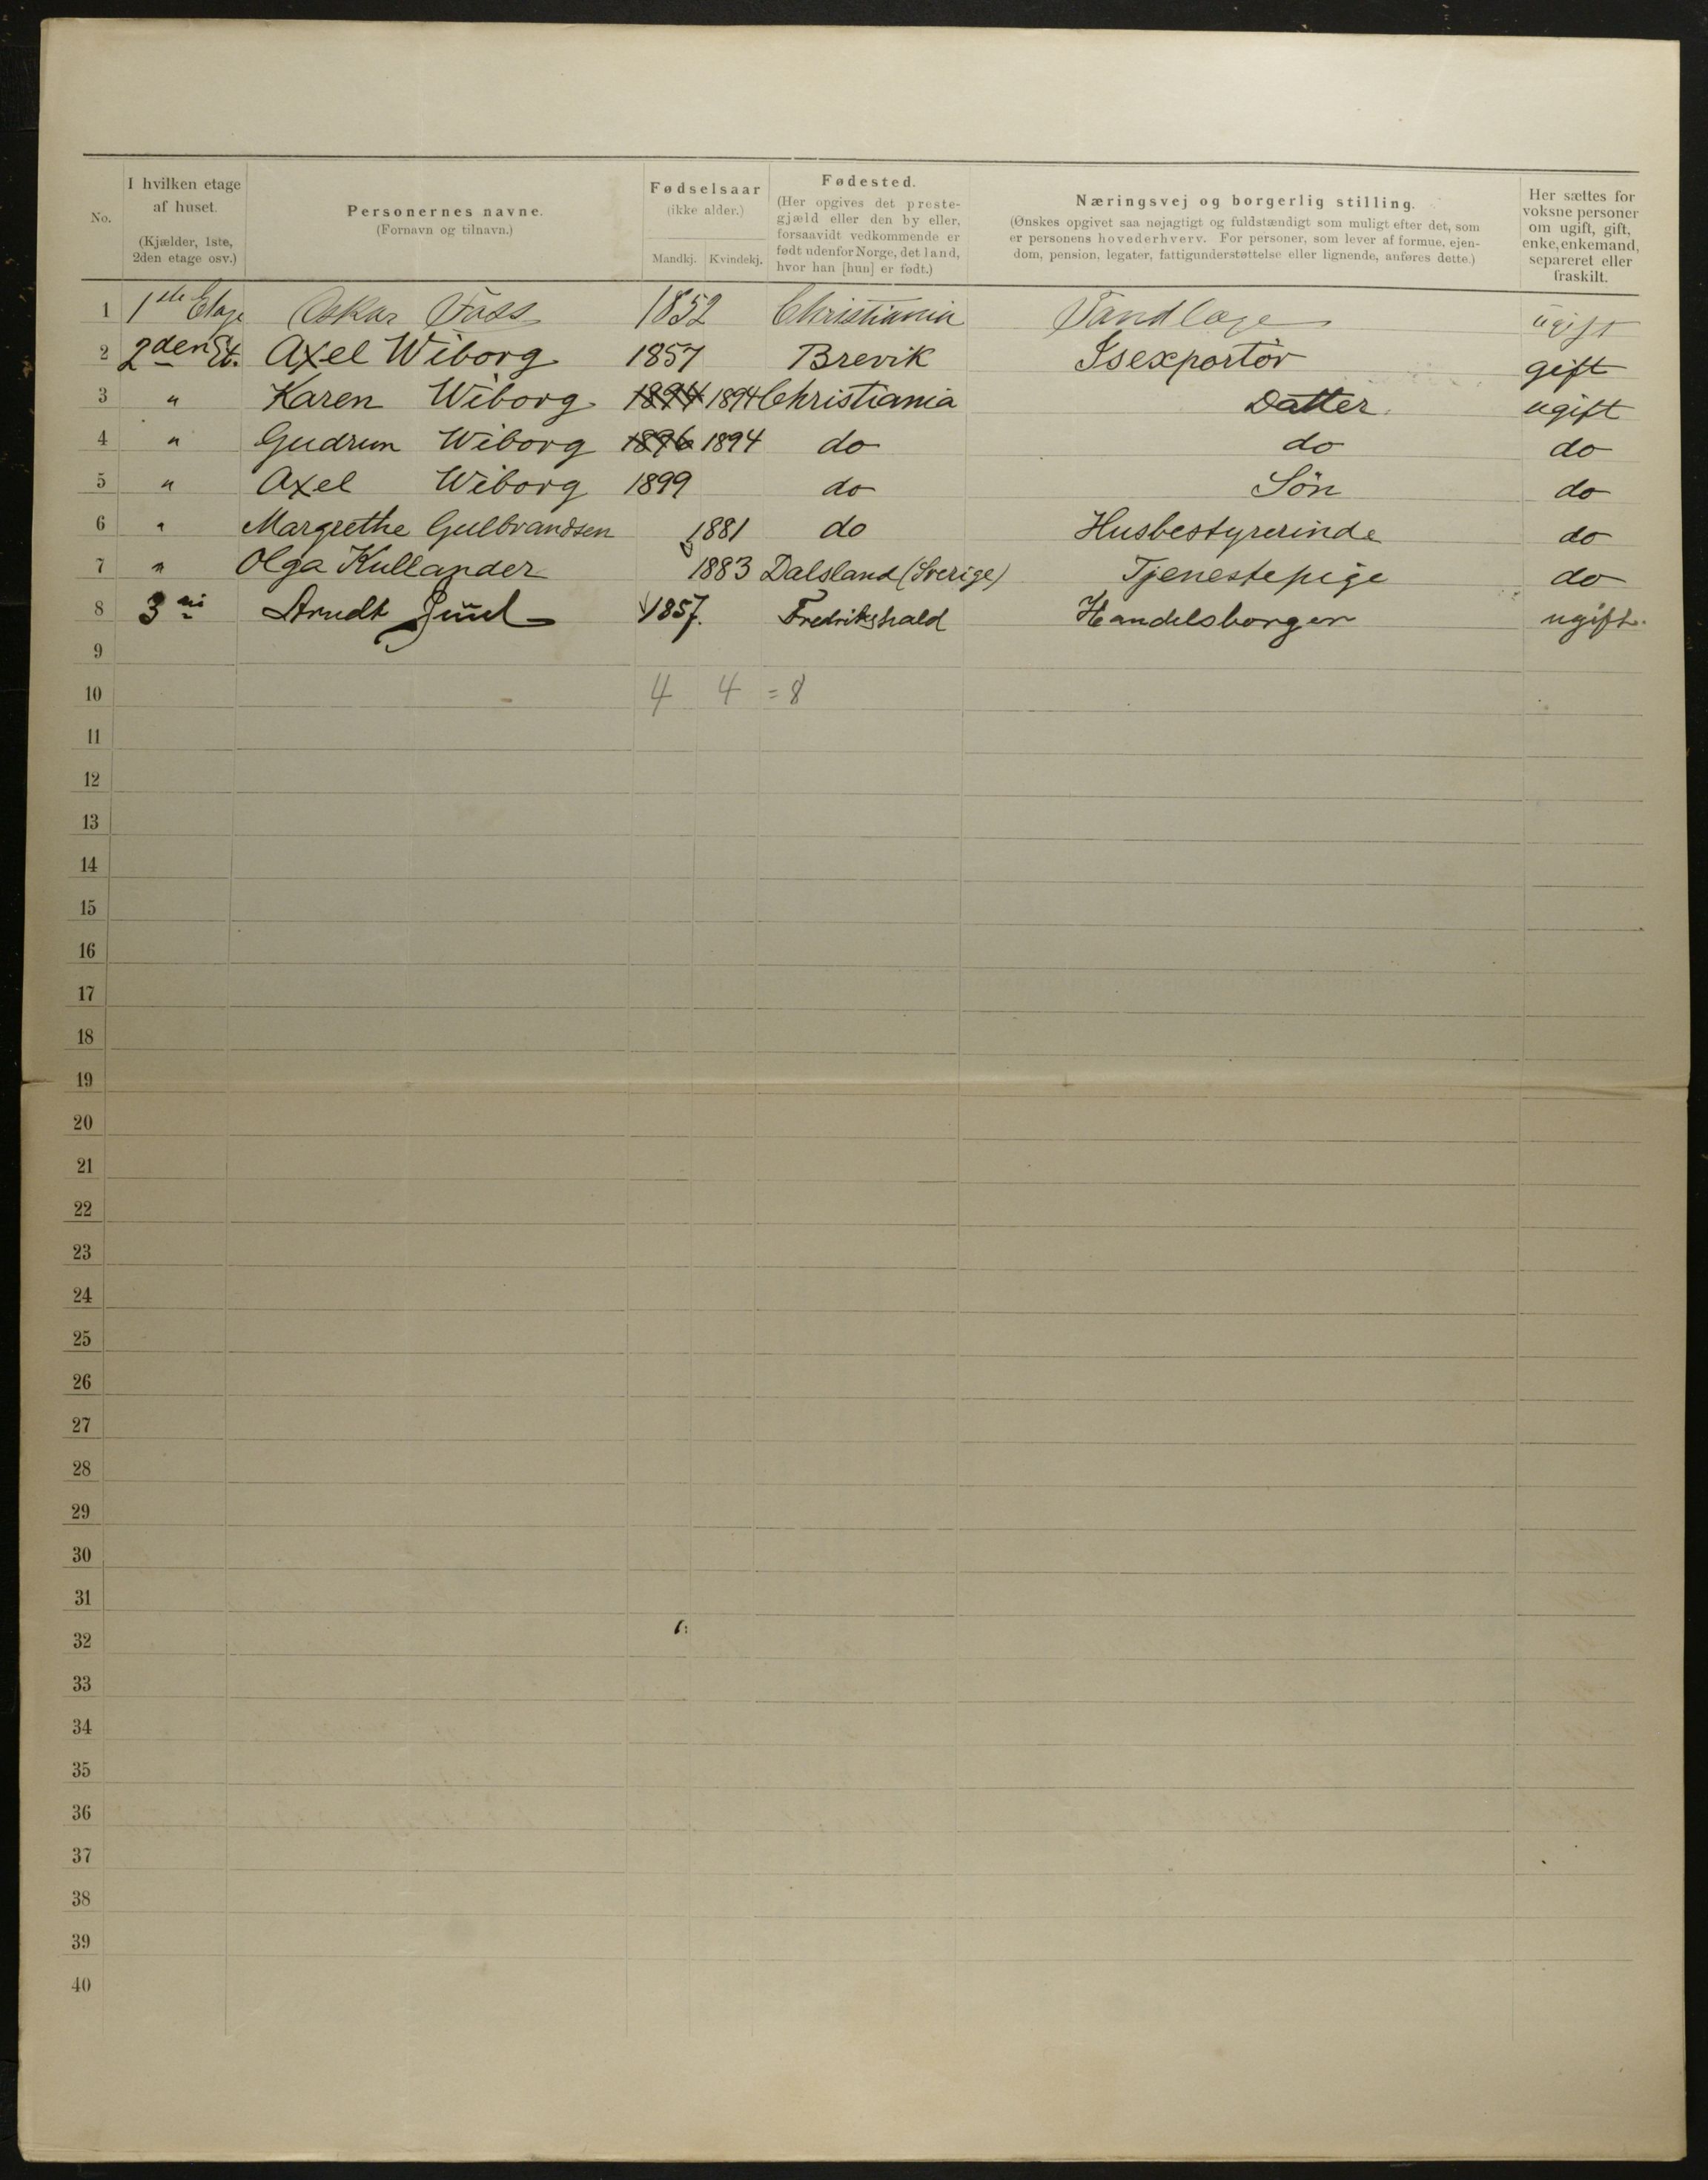 No.
I hvilken etage af huset. (Kjælder, 1ste, 2den etage osv.)
Personernes navne. (Fornavn og tilnavn.)
Fødselsaar (ikke alder.) Mandkj. Kvindekj.
Fødested. (Her opgives det prestegjæld eller den by eller, forsaavidt vedkommende er født udenfor Norge, det land, hvor han [hun] er født.)
Næringsvej og borgerlig stilling. (Ønskes opgivet saa nøjagtigt og fuldstændigt som muligt efter det, som er personens hovederhverv. For personer, som lever af formue, ejendom, pension, legater, fattigunderstøttelse eller lignende, anføres dette.)
Her sættes for voksne personer om ugift, gift, enke, enkemand, separeret eller fraskilt.
1 1ste Etage Oskar 1852 Christiania Tandlæge ugift
2 2den Et. Axel Wiborg 1857 Brevik Isexportör gift
3 " Karen Wiborg 1894 1894 Christiania Datter ugift
4 " Gudrun Wiborg 1896 1894 do do do
5 " Axel Wiborg 1899 do Sön do
6 " Margrethe Gulbrandsen 1881 do Husbestyrerinde do
7 " Olga Kullander 1883 Dalsland (Sverige) Tjenestepige do
8 3 Arndt 1857. Fredrikshald Handelsborger ugift.
9
10 4 4 = 8
11
12
13
14
15
16
17
18
19
20
21
22
23
24
25
26
27
28
29
30
31
32
33
34
35
36
37
38
39
40